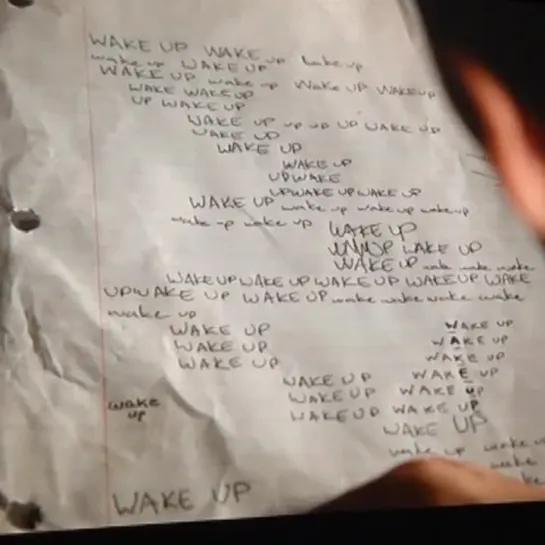 WAKE UP WAKE
wake up WAKE UP wake up
WAKE UP wake up Wake UP WAKEUP
WAKE WAKEUP
UP WAKE UP
WAKE UP UP UP UP WAKE UP
WAKE UP
WAKE UP
WAKE UP
UPWAKE
UPWAKE UPWAKE UP
WAKE UP wake up wake up wake up
wake up wake up WAKE UP
UP WAKE UP
WAKE UP wake wake wake
WAKEUPWAKE UPWAKE UP WAKEUP WAKE
UPWAKE UP WAKE UP wake wake wake wake
wake up
WAKE UP WAKE UP
WAKE UP WAKE UP
WAKE UP WAKE UP
WAKE UP WAKE UP
WAKEUP WAKE UP
wake
up
WAKEUP WAKE UP
WAKE UP
wake up wake u
wake
ke
WAKE UP